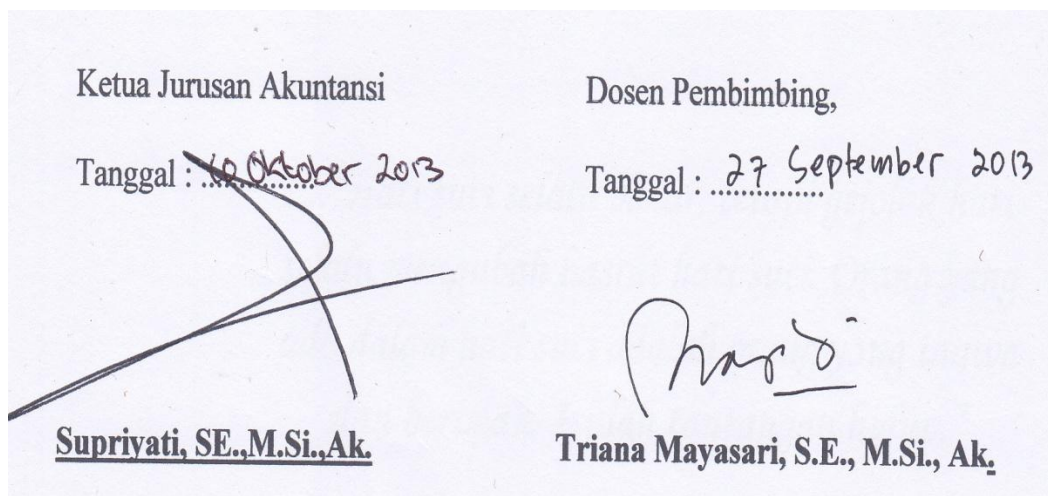 Ketua Jurusan Akuntansi
Tanggal : 10 Oktober 2013
Supriyati, SE.,M.Si.,Ak.
Dosen Pembimbing,
Tanggal : 27 September 2013
Triana Mayasari, S.E., M.Si., Ak.